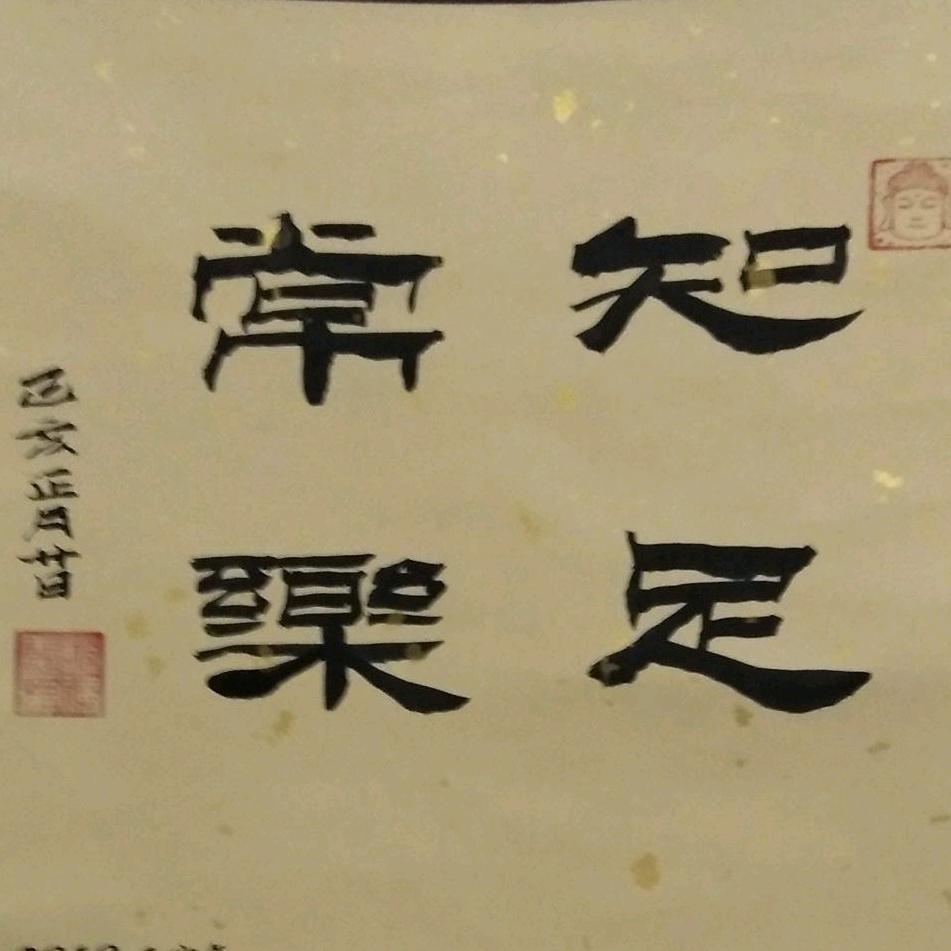 知足
常樂
己亥正月廿日